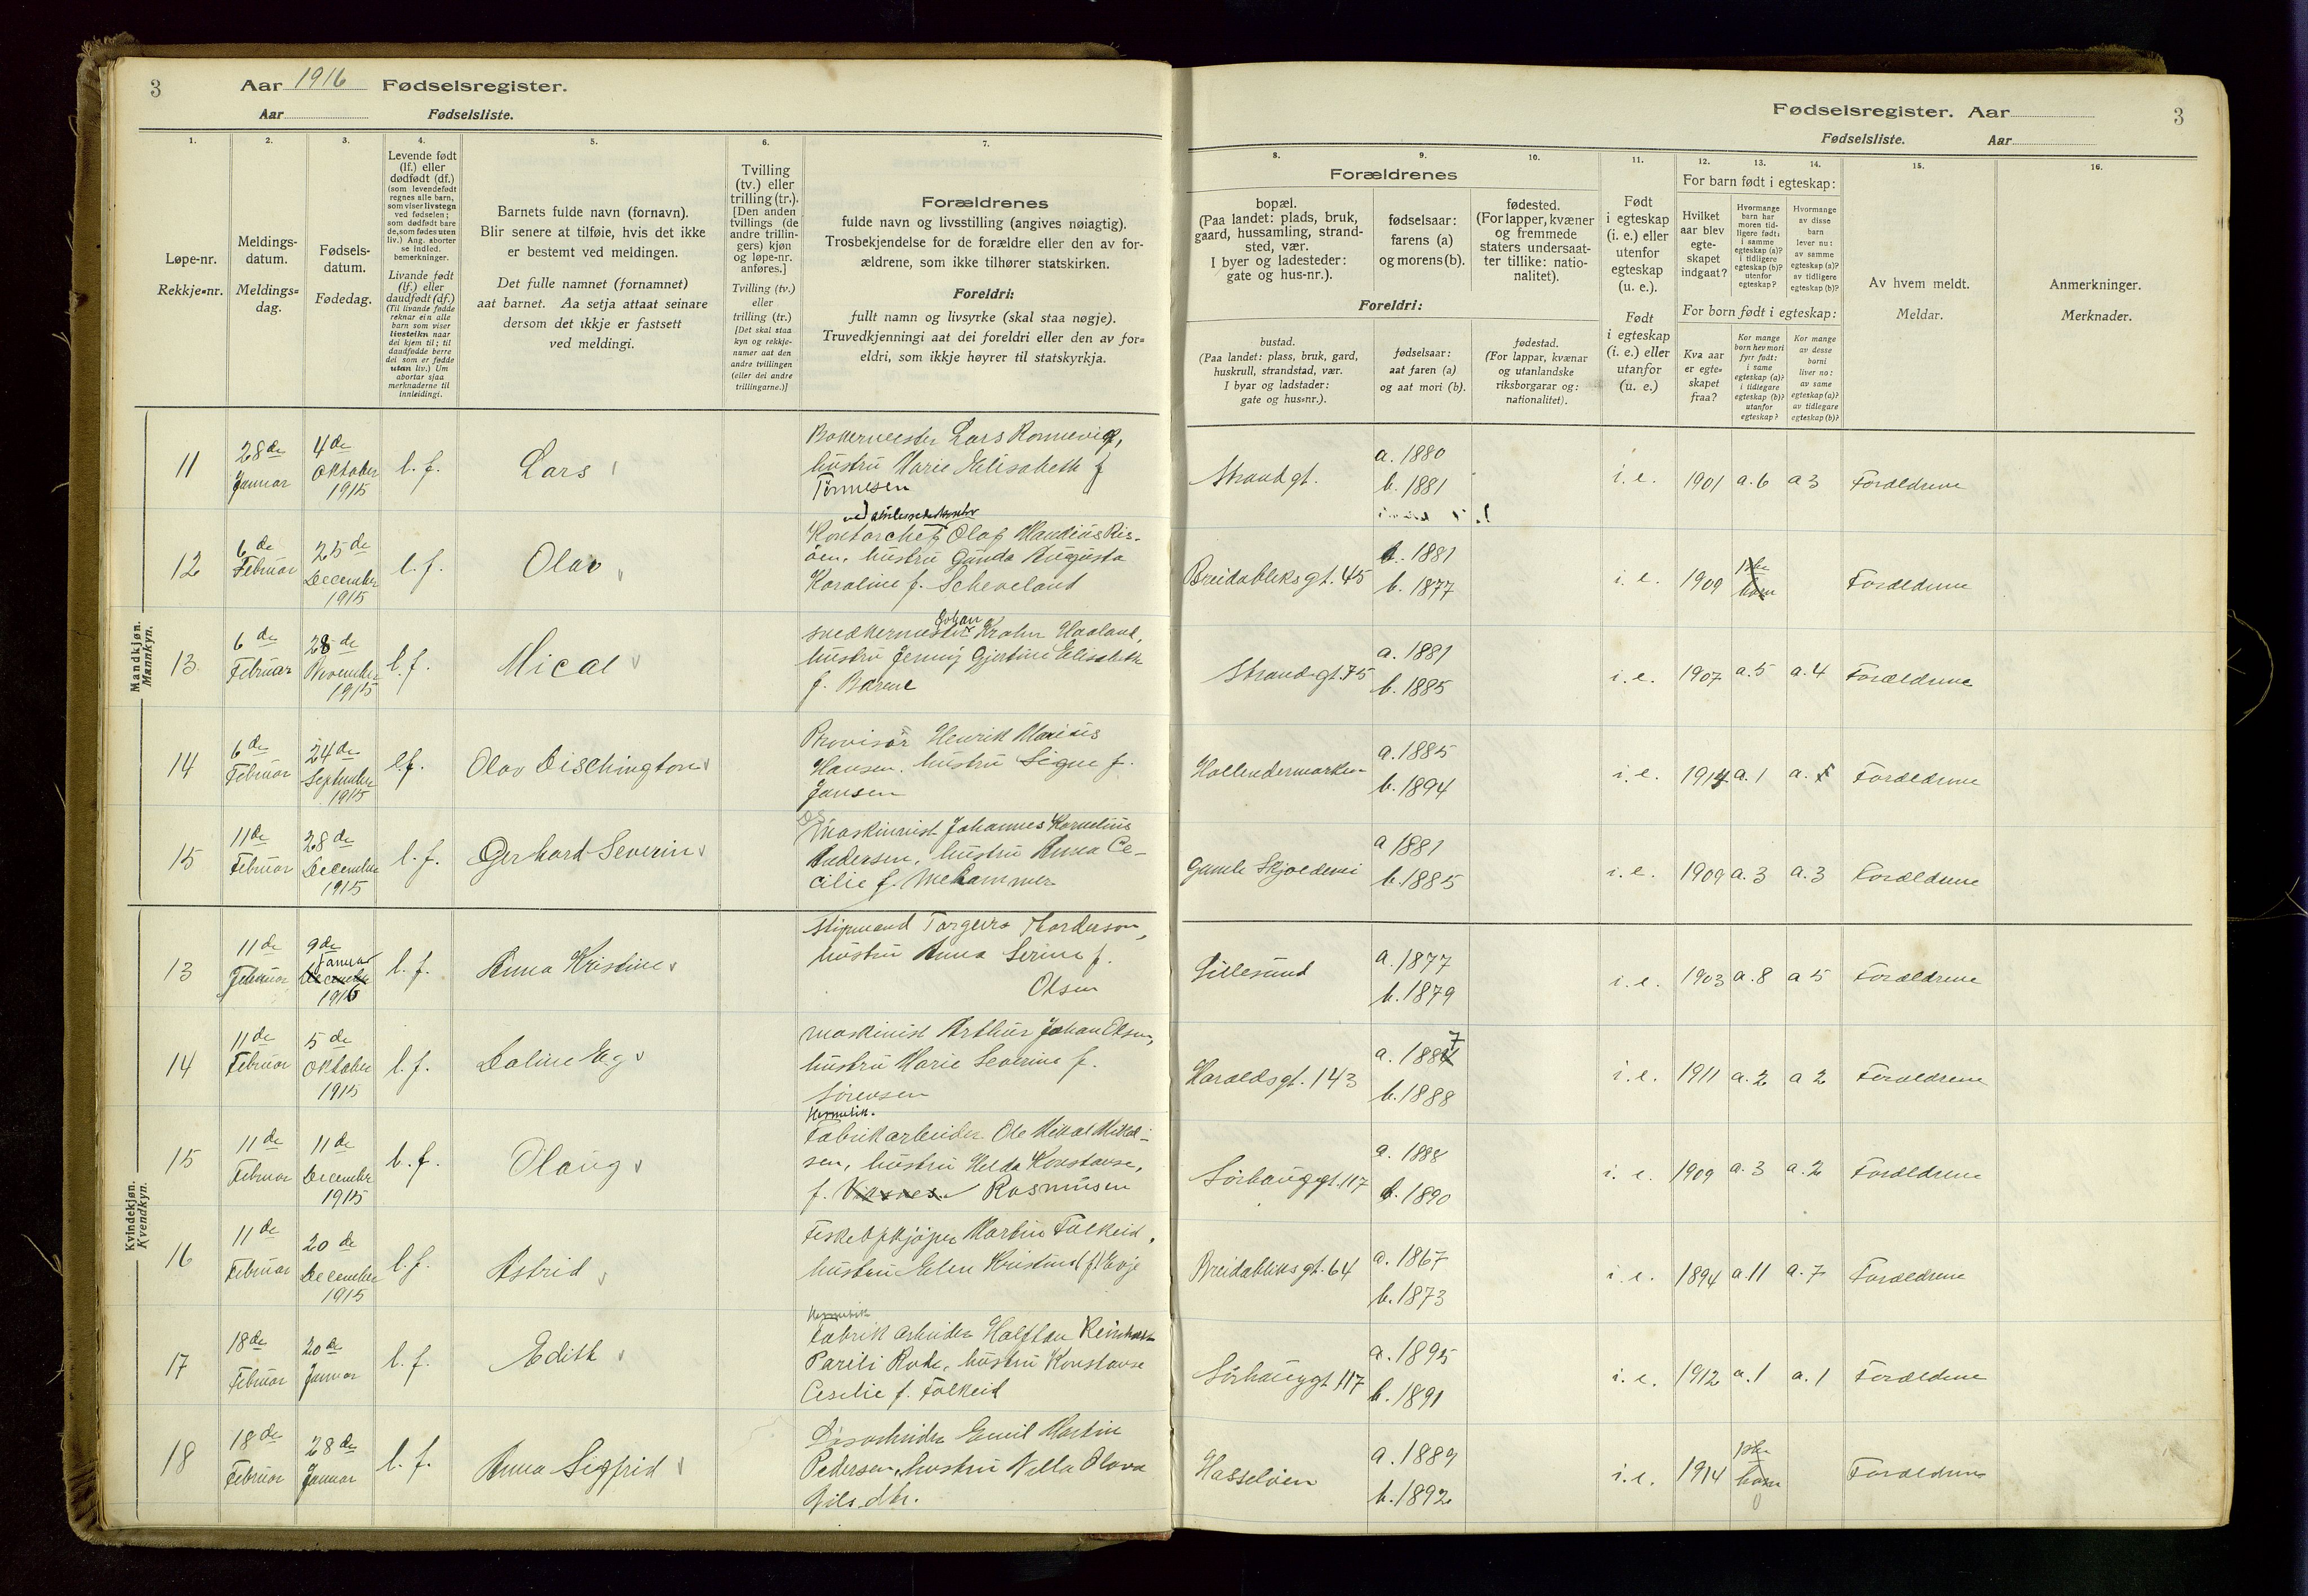 3
Aar 1916 Fødselsregister.
Aar Fødselsliste.
1.
2.
3.
4.
5.
6.
7.
Løpe-nr.
Rekkje-nr.
Meldings-
datum.
Meldings-
dag.
Fødsels-
datum.
Fødedag.
Levende født
(lf.) eller
dødfødt (df.)
(som levendefødt
regnes alle barn,
som viser livstegn
ved fødselen;
som dødfødt bare
de, som fødes uten
liv.) Ang. aborter
se indled.
bemerkninger.
Livande født
(lf.) eller
daudfødt (df.)
(Til livande fødde
reknar ein alle
barn som viser
livsteikn naar
dei kjem til; til
daudfødde berre
dei som er fødde
utan liv.) Um
abortar sjaa
merknaderne til
innleidingi.
Barnets fulde navn (fornavn).
Blir senere at tilføie, hvis det ikke
er bestemt ved meldingen.
Det fulle namnet (fornamnet)
aat barnet. Aa setja attaat seinare
dersom det ikkje er fastsett
ved meldingi.
Tvilling
(tv.) eller
trilling (tr.).
[Den anden
tvillings (de
andre trillin-
gers) kjøn
og løpe-nr.
anføres.]
Tvilling (tv.)
eller
trilling (tr.)
[Det skal staa
kyn og rekkje-
numer aat den
andre tvillingen
(eller dei andre
trillingarne.)]
Forældrenes
fulde navn og livsstilling (angives nøiagtig).
Trosbekjendelse for de forældre eller den av for-
ældrene, som ikke tilhører statskirken.
Foreldri:
fullt namn og livsyrke (skal staa nøgje).
Truvedkjenningi aat dei foreldri eller den av for-
eldri, som ikkje høyrer til statskyrkja.
Mandkjøn.
Mannkyn.
11 28de Januar 4de Oktober 1915 l.f. Lars
Lars Ronnevig,
hustru Marie Elisabeth f
Tønnesen
12 6de Februar 25de December 1915 l.f. Olav
Kontorchef Olaf
hustru Gunda Augusta
Karoline f. Scheveland
13 6de Februar 28de November 1915 l.f. Mical
Johan
Krohn Haaland,
hustru Jenny Gjertine Elisabeth
f. Barene
14 6de Februar 24de September 1915 l.f. Olav Dischington
Provisor Henrik Marius
Hansen, hustru Signe f.
Jansen
15 11de Februar 28de December 1915 l.f. Gerhard Severin
Maskinist Johannes Kornelius
Andersen, hustru Anna Ce-
cilie f. Mehammer
Kvindekjøn.
Kvendkyn.
13 11de Februar 9de Januar 1916 l.f. Anna Kristine
Torgeirs Thorderson,
hustru Anna Serine f.
Olsen
14 11de Februar 5de Oktober 1915 l.f. Daline Eg
Maskinist Arthur Johan Olsen,
hustru Marie Severine f.
Sörensen
15 11de Februar 11de December 1915 l.f. Olaug
Hermetik.
Fabrikarbeider Ole Mikal Mikal-
sen, hustru Helda Konstanse,
f. Rasmusen
16 11de Februar 20de December 1915 l.f. Astrid
Fiskeopkjøper Martin Falkeid,
hustru Elen Kristine f. Evje
17 18de Februar 20de Januar l.f. Edith
Hermetik
Fabrik arbeider Halfdan Reinholdt
Parili Rode, hustru Konstanse
Cesilie f. Falkeid
18 18de Februar 28de Januar l.f. Anna Sigfrid
Emil Martin
Pedersen, hustru Nella Olava
Nilsdtr.
Fødselsregister. Aar
3
Fødselsliste. Aar
8.
9.
10.
11.
12.
13.
14.
15.
16.
Forældrenes
bopæl.
(Paa landet: plads, bruk,
gaard, hussamling, strand-
sted, vær.
I byer og ladesteder:
gate og hus-nr.).
fødselsaar:
farens (a)
og morens (b).
fødested.
(For lapper, kvæner
og fremmede
staters undersaat-
ter tillike: natio-
nalitet).
Foreldri:
bustad.
(Paa landet: plass, bruk, gard,
huskrull, strandstad, vær.
I byar og ladstader:
gate og hus-nr.).
fødselsaar:
aat faren (a)
og aat mori (b).
fødestad.
(For lappar, kvænar
og utanlandske
riksborgarar og:
nationalitet).
Født
i egteskap
(i. e.) eller
utenfor
egteskap
(u. e.).
Født
i egteskap
(i. e.) eller
utanfor
(u. e.)
For barn født i egteskap:
Hvilket
aar blev
egte-
skapet
indgaat?
Hvormange
barn har
moren tid-
ligere født:
i samme
egteskap (a)?
i tidligere
egteskap (b)?
utenfor
egteskap?
Hvormange
av disse
barn
lever nu:
av samme
egteskap (a)?
av tidligere
egteskap (b)?
For born født i egteskap:
Kva aar
er egte-
skapet
fraa?
Kor mange
born hev mori
fyrr født:
i same
egteskap (a)?
i tidlegare
egteskap (b)?
utanfor
egteskap?
Kor mange
av desse
borni
liver no:
av same
egteskap (a)?
av tidlegare
egteskap (b)?
Av hvem meldt.
Meldar.
Anmerkninger.
Merknader.
Strandgt. a. 1880 b. 1881 i. e. 1901 a. 6 a 3 Forældrene
Breidabliksgt. 45 a. 1881 b. 1877 i. e. 1909 1ste barn Forældrene
Strandgt. 75 a. 1881 b. 1885 i. e. 1907 a. 5 a. 4 Forældrene
Hollendermarken a. 1885 b. 1894 i. e. 1914 a. 1 Forældrene
Gamle Skjoldevei a 1881 b. 1885 i. e. 1909 a. 3 a. 3 Forældrene
Lillesund a. 1877 b. 1879 i. e. 1903 a. 8 a 5 Forældrene
Haraldsgt. 143 a. 1887 b. 1888 i. e. 1911 a. 2 a 2 Forældrene
Sörhauggt. 117 a. 1888 b. 1890 i. e. 1909 a. 3 a. 2 Forældrene
Breidabliksgt. 64 a. 1867 b. 1873 i. e. 1894 a. 11 a. 7 Forældrene
Sörhauggt 117 a. 1895 b. 1891 i. e. 1912 a. 1 a. 1 Forældrene
Hasseløen a. 1889 b. 1892 i. e. 1914 1ste barn 0 Forældrene